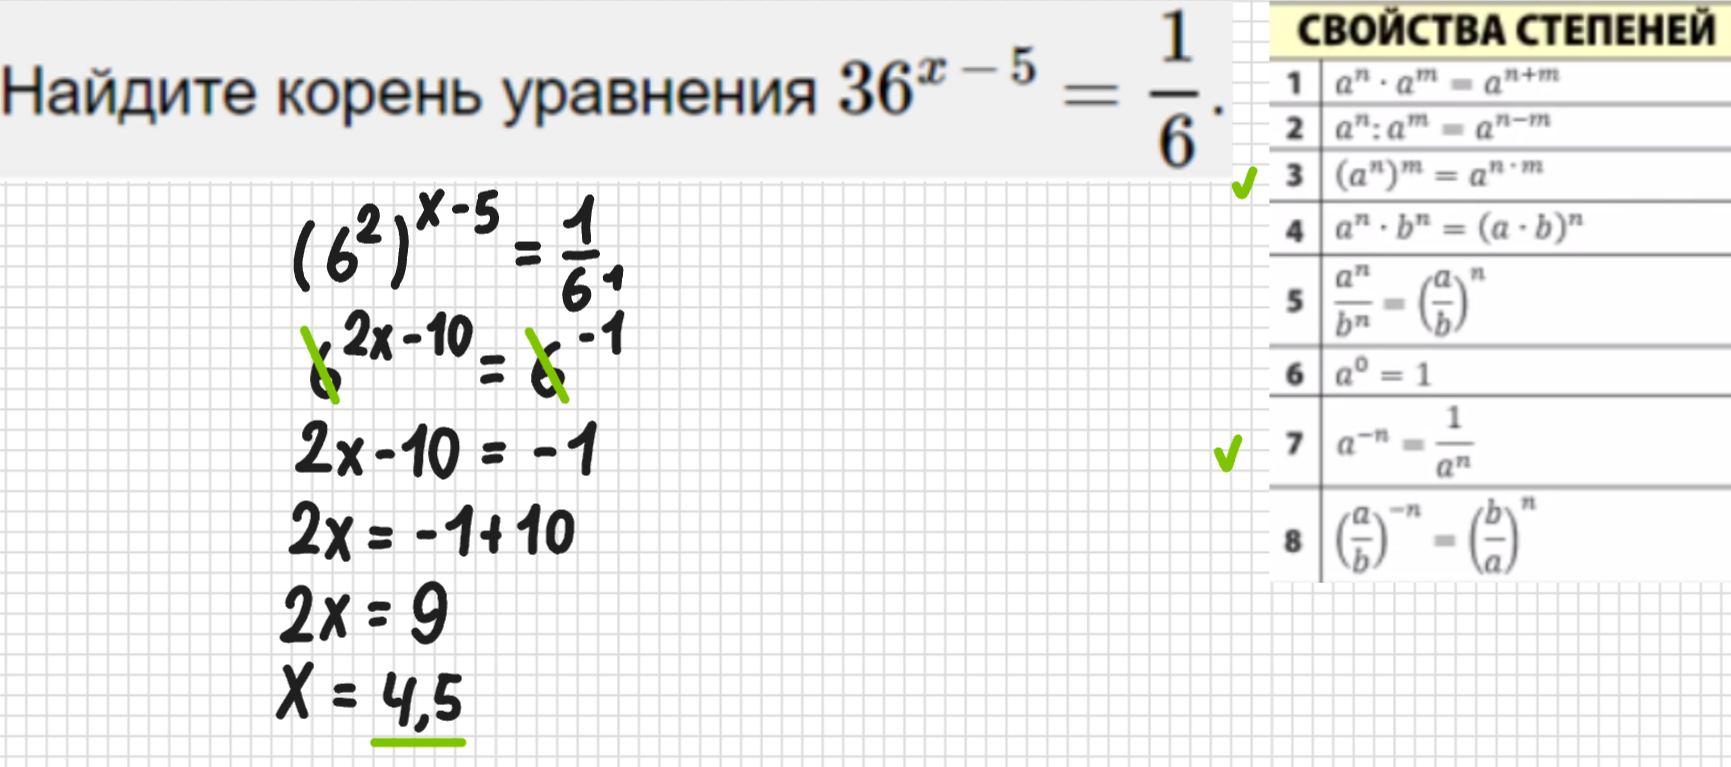 Найдите корень уравнения 36^(x − 5) = 1/6.
(6^2)^(x-5) = 1/6^1
6^(2x-10) = 6^(-1)
2x-10 = -1
2x = -1+10
2x = 9
x = 4,5
СВОЙСТВА СТЕПЕНЕЙ
1 a^n · a^m = a^(n+m)
2 a^n : a^m = a^(n−m)
3 (a^n)^m = a^(n·m)
4 a^n · b^n = (a · b)^n
5 a^n/b^n = (a/b)^n
6 a^0 = 1
7 a^(−n) = 1/a^n
8 (a/b)^(−n) = (b/a)^n